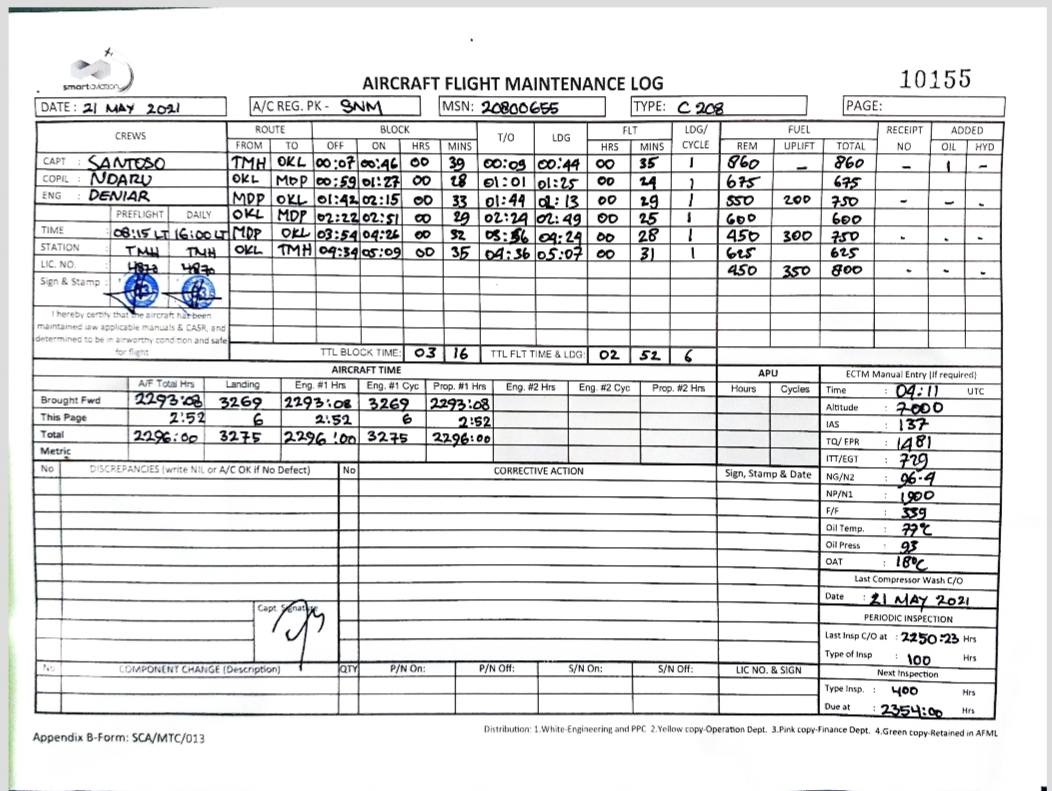 smartaviation
AIRCRAFT FLIGHT MAINTENANCE LOG
10155
DATE : 21 MAY 2021 A/C REG. PK - SNM MSN: 20800655 TYPE: C 208 PAGE:
CREWS ROUTE BLOCK T/O LDG FLT LDG/ CYCLE FUEL RECEIPT NO ADDED
FROM TO OFF ON HRS MINS HRS MINS REM UPLIFT TOTAL OIL HYD
CAPT : SANTOSO TMH OKL 00:07 00:46 00 39 00:09 00:44 00 35 1 860 - 860 - 1 -
COPIL : NDARU OKL MDP 00:59 01:27 00 28 01:01 01:25 00 24 1 675 675
ENG : DENIAR MDP OKL 01:42 02:15 00 33 01:44 02:13 00 29 1 550 200 750 - - -
PREFLIGHT DAILY OKL MDP 02:22 02:51 00 29 02:24 02:49 00 25 1 600 600
TIME 08:15 LT 16:00 LT MDP OKL 03:54 04:26 00 32 03:56 04:24 00 28 1 450 300 750 - - -
STATION : TMH TMH OKL TMH 04:34 05:09 00 35 04:36 05:07 00 31 1 625 625
LIC. NO. : 4870 4870 450 350 800 - - -
Sign & Stamp :
I hereby certify that the aircraft has been
maintained iaw applicable manuals & CASR, and
determined to be in airworthy condition and safe
for flight
TTL BLOCK TIME: 03 16 TTL FLT TIME & LDG: 02 52 6
AIRCRAFT TIME APU ECTM Manual Entry (If required)
A/F Total Hrs Landing Eng. #1 Hrs Eng. #1 Cyc Prop. #1 Hrs Eng. #2 Hrs Eng. #2 Cyc Prop. #2 Hrs Hours Cycles Time : 04:11 UTC
Brought Fwd 2293:08 3269 2293:08 3269 2293:08 Altitude : 7000
This Page 2:52 6 2:52 6 2:52 IAS : 137
Total 2296:00 3275 2296:00 3275 2296:00 TQ/ EPR : 1481
Metric ITT/EGT : 729
No DISCREPANCIES (write NIL or A/C OK if No Defect) No CORRECTIVE ACTION Sign, Stamp & Date NG/N2 : 96.4
NP/N1 : 1900
F/F : 339
Oil Temp. : 77°C
Oil Press : 93
OAT : 18°C
Last Compressor Wash C/O
Date : 21 MAY 2021
Capt. Signature
PERIODIC INSPECTION
Last Insp C/O at : 2250:23 Hrs
Type of Insp : 100 Hrs
No COMPONENT CHANGE (Description) QTY P/N On: P/N Off: S/N On: S/N Off: LIC NO. & SIGN Next Inspection
Type Insp. : 400 Hrs
Due at : 2354:00 Hrs
Appendix B-Form: SCA/MTC/013
Distribution: 1.White-Engineering and PPC 2.Yellow copy-Operation Dept. 3.Pink copy-Finance Dept. 4.Green copy-Retained in AFML